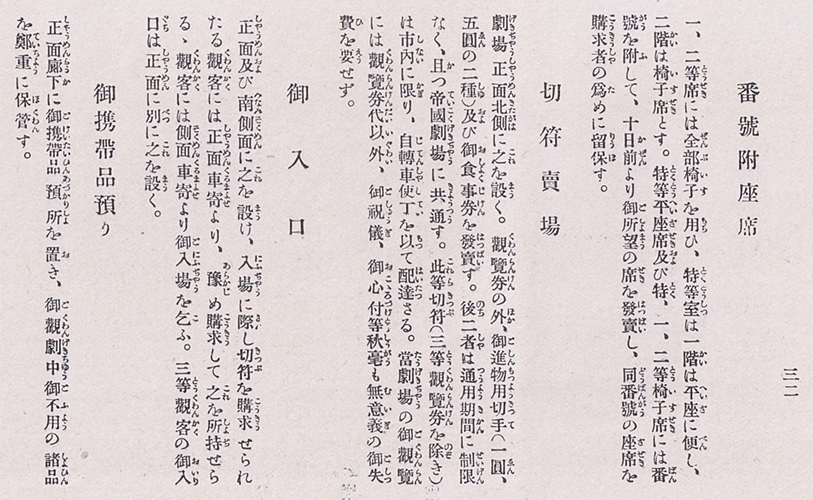 三二
番號附座席
一、二等席には全部椅子を用ひ、特等室は一階は平座に便し、
二階は椅子席とす。特等平座席及び特、一、二等椅子席には番
號を附して、十日前より御所望の席を發賣し、同番號の座席を
購求者の爲めに留保す。
切符賣場
劇場正面北側に之を設く。觀覽券の外、御進物用切手（一圓、
五圓の二種）及び御食事券を發賣す。後二者は通用期間に制限
なく、且つ帝國劇場に共通す。此等切符（三等觀覽券を除き）
は市內に限り、自轉車使丁を以て配達さる。當劇場の御觀覽
には觀覽券代以外、御祝儀、御心付等秋毫も無意義の御失
費を要せず。
御入口
正面及び南側面に之を設け、入場に際し切符を購求せられ
たる觀客には正面車寄より、豫め購求して之を所持せら
る、觀客には側面車寄より御入場を乞ふ。三等觀客の御入
口は正面に別に之を設く。
御携帶品預り
正面廊下に御携帶品預所を置き、御觀劇中御不用の諸品
を鄭重に保管す。